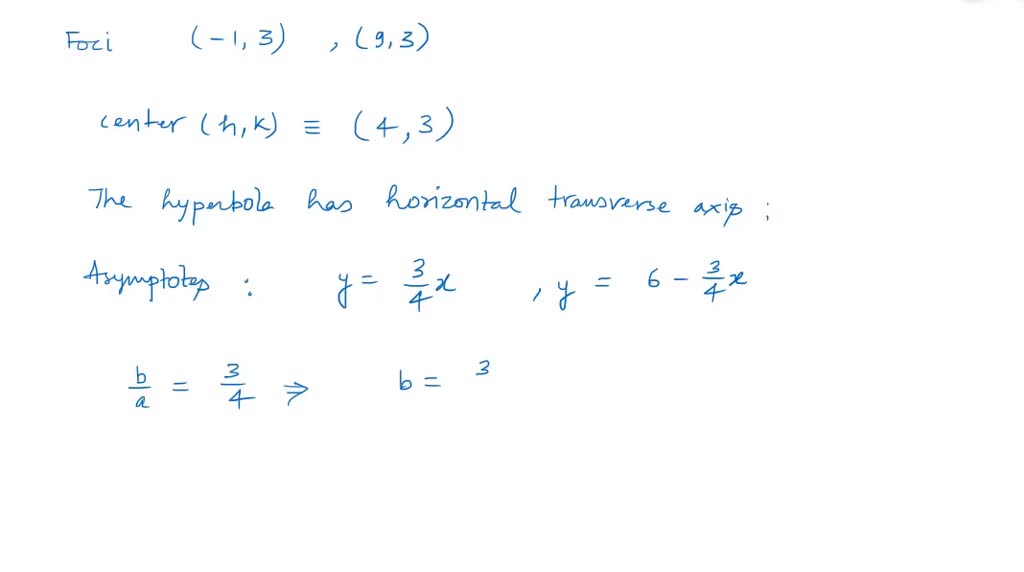 Foci (-1, 3) , (9, 3)
center (h, k) ≡ (4, 3)
The hyperbola has horizontal transverse axis ;
Asymptotes : y = 3/4 x , y = 6 - 3/4 x
b/a = 3/4 ⇒ b = 3